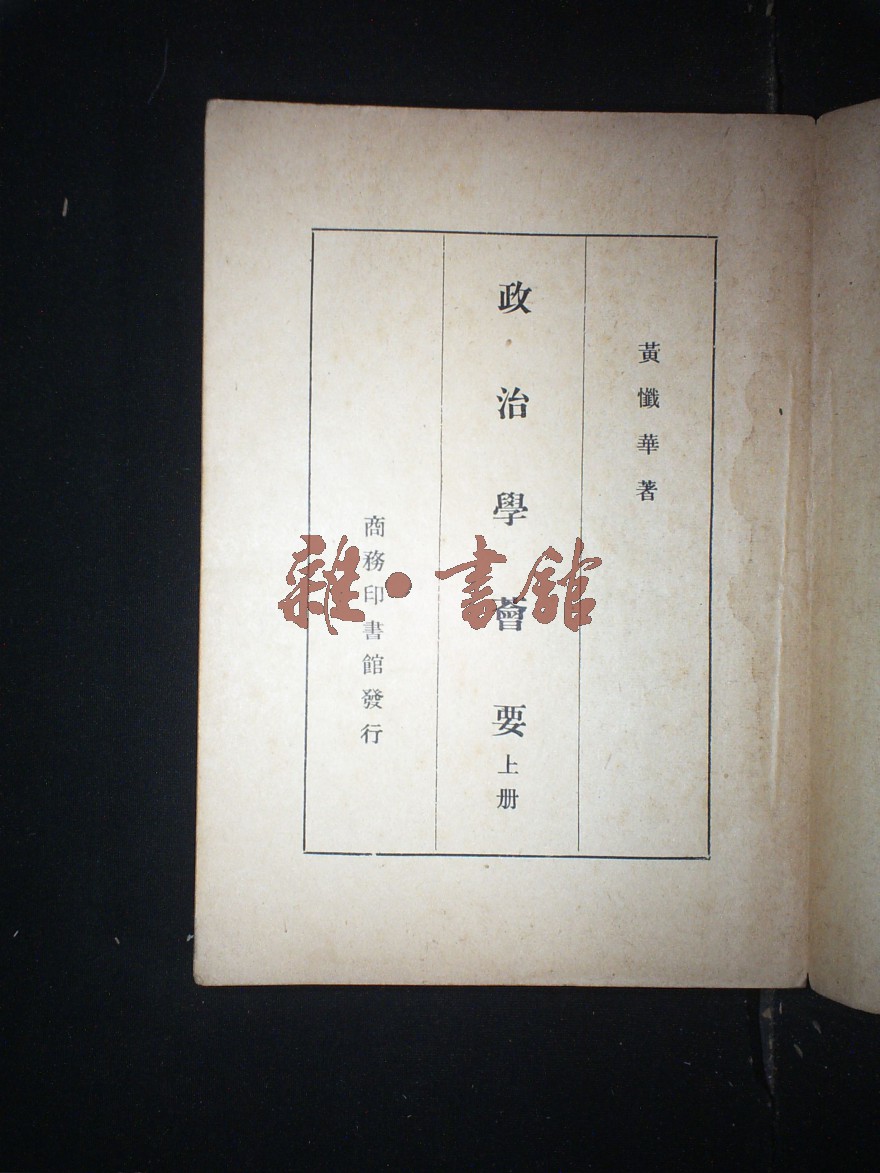 黃懺華著
政治學薈要上册
商務印書館發行
雜·書館